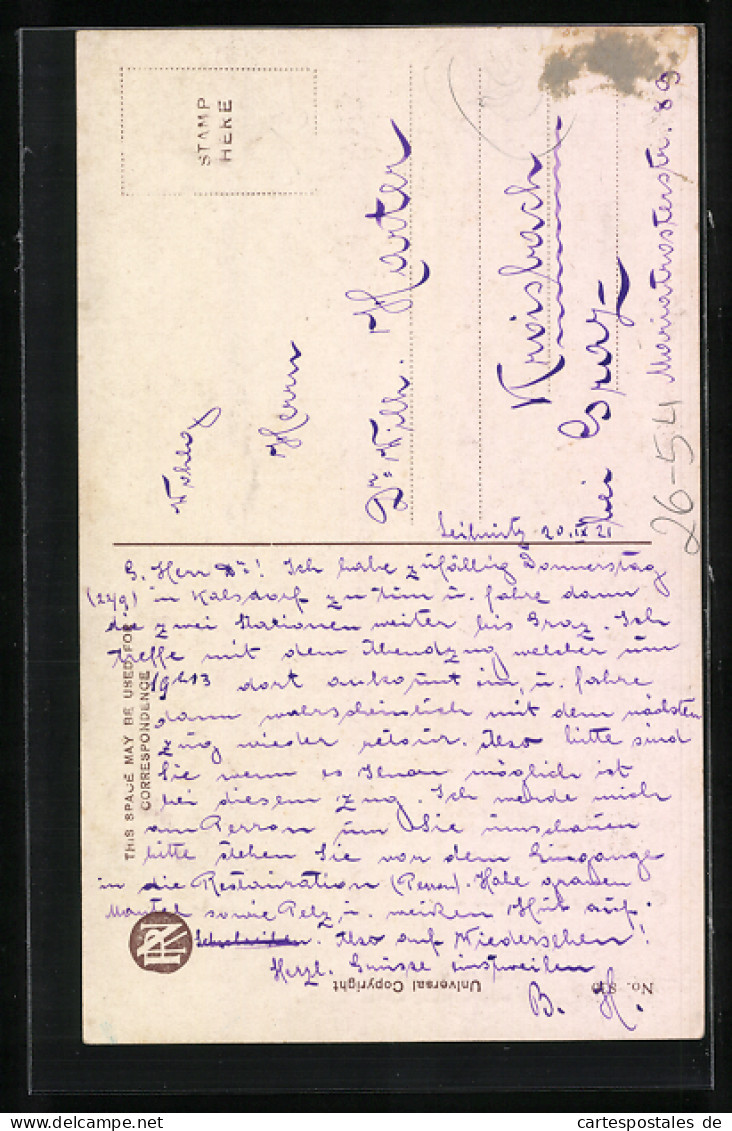 STAMP
HERE
Wohlg
Herrn
Dr. Wilh. Harter
Kroisbach
bei Graz
Mariatrosterstr. 89
26-54
Leibnitz, 20.IX 21
S. Herr Dr! Ich habe zufällig Donnerstag
(22/9) in Kalsdorf zu tun u. fahre dann
die zwei Stationen weiter bis Graz. Ich
treffe mit dem Abendzug welcher um
19h13 dort ankommt ein, u. fahre
dann wahrscheinlich mit dem nächsten
Zug wieder retour. Also bitte sind
Sie wenn es Ihnen möglich ist
bei diesem Zug. Ich werde mich
am Perron um Sie umschauen
bitte stehen Sie vor dem Eingange
in die Restauration (Perron). Habe grauen
Mantel sowie Pelz u. weißen Hut auf.
Also auf Wiedersehen!
Herzl. Grüsse einstweilen
B. H.
THIS SPACE MAY BE USED FOR
CORRESPONDENCE
Universal Copyright
No.
cartespostales de